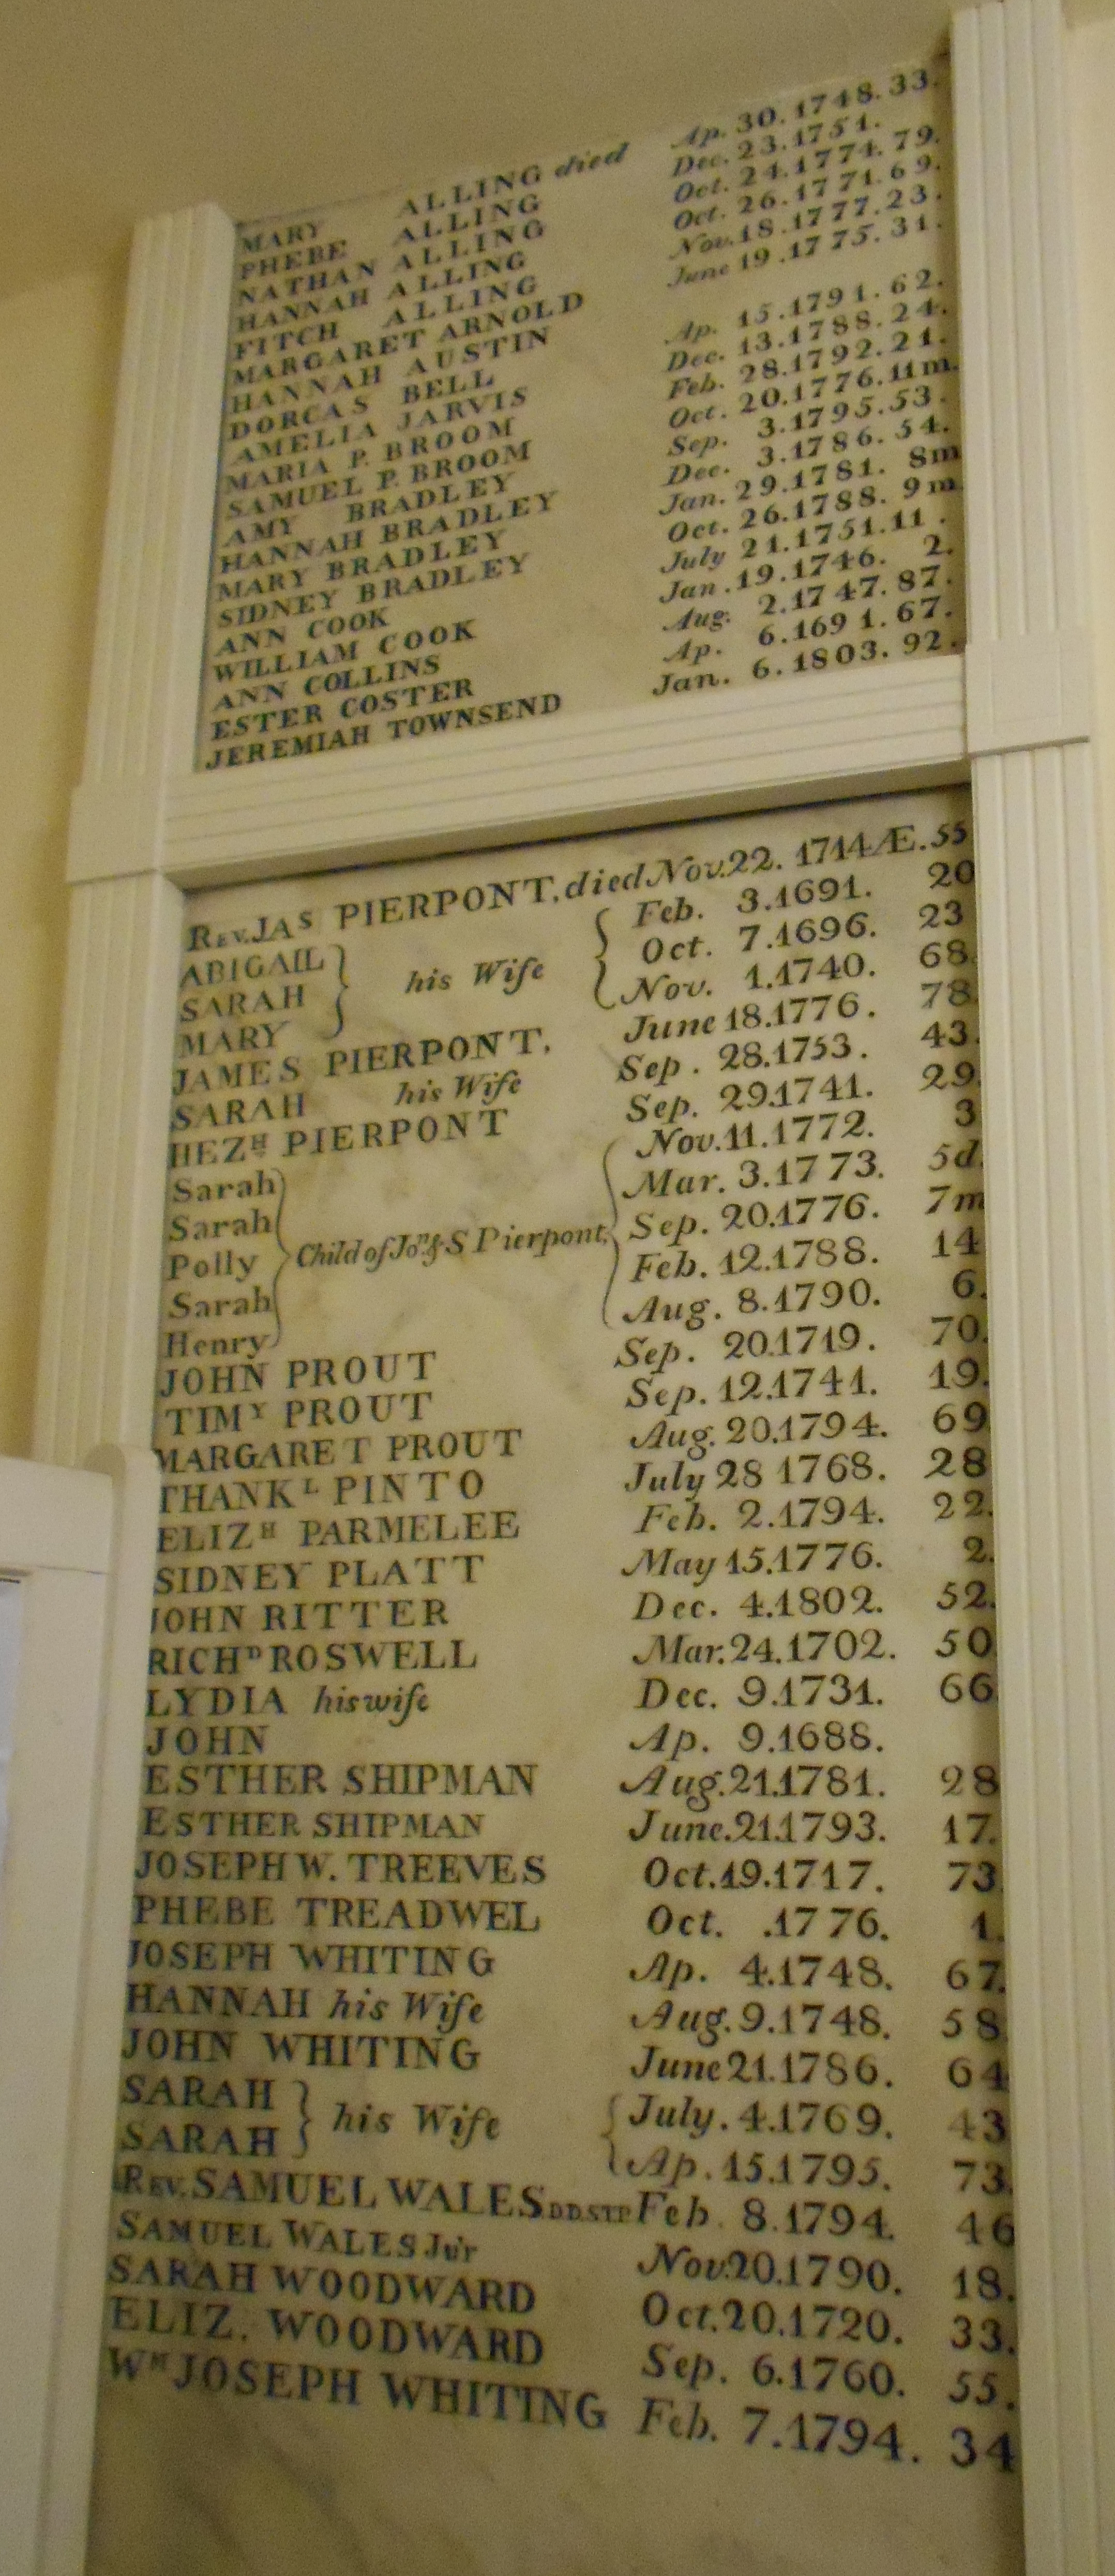 MARY ALLING died Ap. 30.1748.33.
PHEBE ALLING Dec. 23.1751.
NATHAN ALLING Oct. 24.1774. 79.
HANNAH ALLING Oct. 26.1771.69.
FITCH ALLING Nov.18.1777.23.
MARGARET ARNOLD June 19.1775.31.
HANNAH AUSTIN
DORCAS BELL Ap. 15.1791.62.
AMELIA JARVIS Dec. 13.1788.24.
MARIA P. BROOM Feb. 28.1792.21.
SAMUEL P. BROOM Oct. 20.1776.11m.
AMY BRADLEY Sep. 3.1795.53.
HANNAH BRADLEY Dec. 3.1786.54.
MARY BRADLEY Jan. 29.1781. 8m
SIDNEY BRADLEY Oct. 26.1788. 9m
ANN COOK July 21.1751.11.
WILLIAM COOK Jan.19.1746. 2.
ANN COLLINS Aug. 2.1747.87.
ESTER COSTER Ap. 6.1691.67.
JEREMIAH TOWNSEND Jan. 6.1803.92.
REV. JAS PIERPONT, died Nov.22. 1714 Æ.55
ABIGAIL Feb. 3.1691. 20
SARAH his Wife Oct. 7.1696. 23
MARY Nov. 1.1740. 68
JAMES PIERPONT. June 18.1776. 78
SARAH his Wife Sep. 28.1753. 43.
HEZH PIERPONT Sep. 29.1741. 29.
Sarah Nov.11.1772. 3
Sarah Mar. 3.1773. 5d.
Polly Child of Jon. & S Pierpont. Sep. 20.1776. 7m
Sarah Feb. 12.1788. 14
Henry Aug. 8.1790. 6.
JOHN PROUT Sep. 20.1719. 70.
TIMY PROUT Sep. 12.1741. 19.
MARGARET PROUT Aug. 20.1794. 69
THANKL PINTO July 28 1768. 28
ELIZH PARMELEE Feb. 2.1794. 22.
SIDNEY PLATT May 15.1776. 2.
JOHN RITTER Dec. 4.1802. 52.
RICHD ROSWELL Mar.24.1702. 50
LYDIA his wife Dec. 9.1731. 66
JOHN Ap. 9.1688.
ESTHER SHIPMAN Aug.21.1781. 28
ESTHER SHIPMAN June.21.1793. 17.
JOSEPH W. TREEVES Oct.19.1717. 73
PHEBE TREADWEL Oct. .1776. 1.
JOSEPH WHITING Ap. 4.1748. 67.
HANNAH his Wife Aug. 9.1748. 58
JOHN WHITING June 21.1786. 64
SARAH his Wife July. 4.1769. 43
SARAH Ap. 15.1795. 73.
REV. SAMUEL WALES D.D.S.T.P. Feb. 8.1794. 46
SAMUEL WALES Ju'r Nov.20.1790. 18.
SARAH WOODWARD Oct.20.1720. 33.
ELIZ. WOODWARD Sep. 6.1760. 55.
WM JOSEPH WHITING Feb. 7.1794. 34